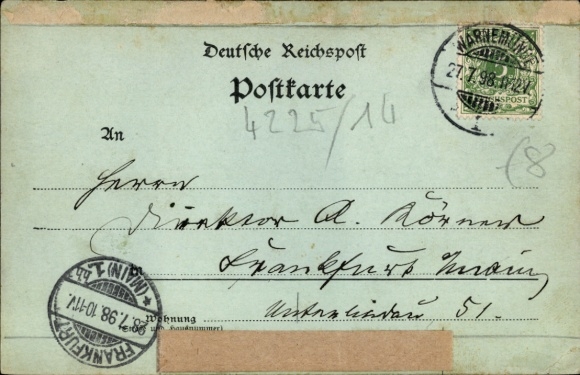 Deutsche Reichspost
Postkarte
WARNEMÜNDE
27.7.98.11-12V.
1
REICHSPOST
4225/14
(8
An
Herrn
Direktor A. Körner
Frankfurt Main
Unterlindau 51.
Wohnung
(Straße und Hausnummer)
FRANKFURT (MAIN) 1
28.7.98.10-11V.